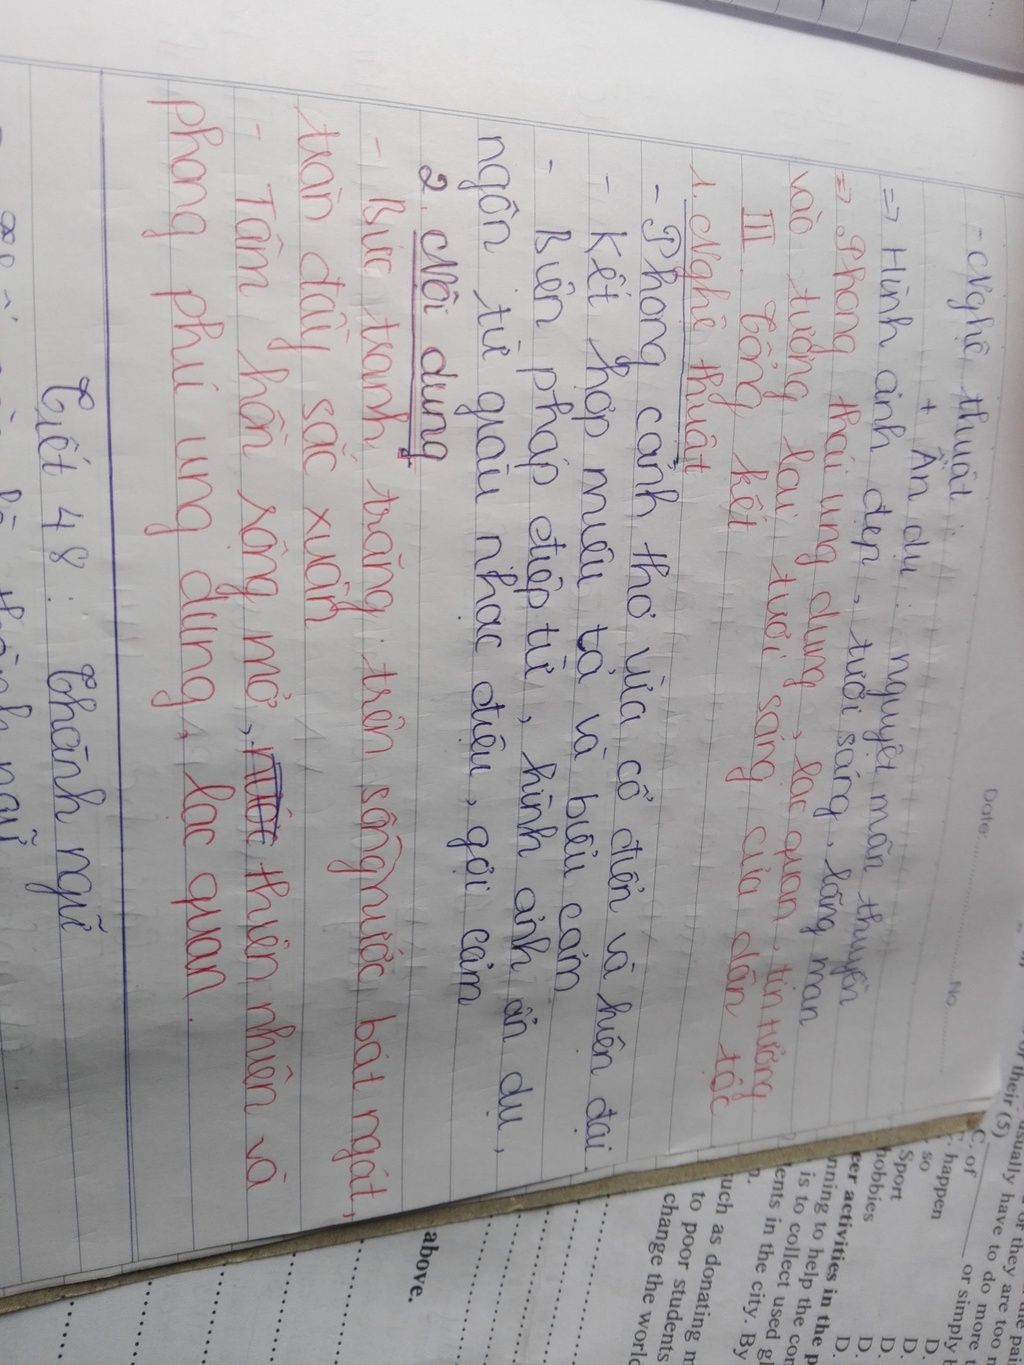 Date: No
- Nghệ thuật:
+ Ẩn dụ: nguyệt mãn thuyền
=> Hình ảnh đẹp, tươi sáng, lãng mạn
=> Phong thái ung dung, lạc quan, tin tưởng
vào tương lai tươi sáng của dân tộc
III. Tổng kết
1. Nghệ thuật
- Phong cảnh thơ vừa cổ điển và hiện đại
- Kết hợp miêu tả và biểu cảm
- Biện pháp điệp từ, hình ảnh ẩn dụ,
ngôn từ giàu nhạc điệu, gợi cảm
2. Nội dung
- Bức tranh trăng trên sông nước bát ngát,
tràn đầy sắc xuân
- Tâm hồn rộng mở, thiên nhiên và
phong phú ung dung, lạc quan.
Tiết 48: Thành ngữ
thành ngữ
of their (5)
usually have to do more
C. of
or simply
C. happen
so
D.
Sport
D.
hobbies
D.
eer activities in the
D.
nning to help the
is to collect used
ents in the city. By
uch as donating
to poor students
change the world
above.